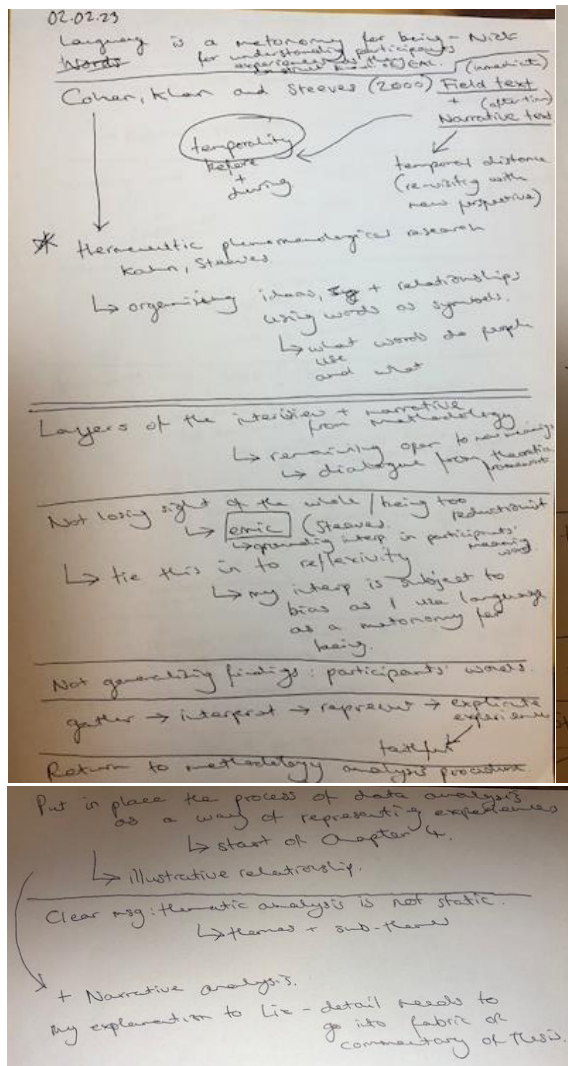 02.02.23
Language is a metonomy for being - Nick
Words for understanding participants'
experiences
(immediate)
Cohen, Khan and Steeves (2000) Field text
+ (after time)
Narrative text
temporality
before
+
during
temporal distance
(re-visiting with
new perspective)
* Hermeneutic phenomenological research
Kahn, Steeves
↳ organising ideas, + relationships
using words as symbols.
↳ what words do people
use
and what
Layers of the interview + narrative
from methodology
↳ remaining open to new meanings
↳ dialogue from theoretical
framework
Not losing sight of the whole / being too
reductionist
↳ emic (Steeves.
↳ grounding interp in participants'
meaning
↳ tie this in to reflexivity
↳ my interp is subject to
bias as I use language
as a metonomy for
being.
Not generalizing findings: participants' words.
gather → interpret → represent → explicate
experience
faithful
Return to methodology analysis procedure.
Put in place the process of data analysis
as a way of representing experiences
↳ start of Chapter 4.
↳ illustrative relationship.
Clear msg: thematic analysis is not static.
↳ themes + sub-themes
+ Narrative analysis.
My explanation to Liz - detail needs to
go into fabric or
commentary of thesis.